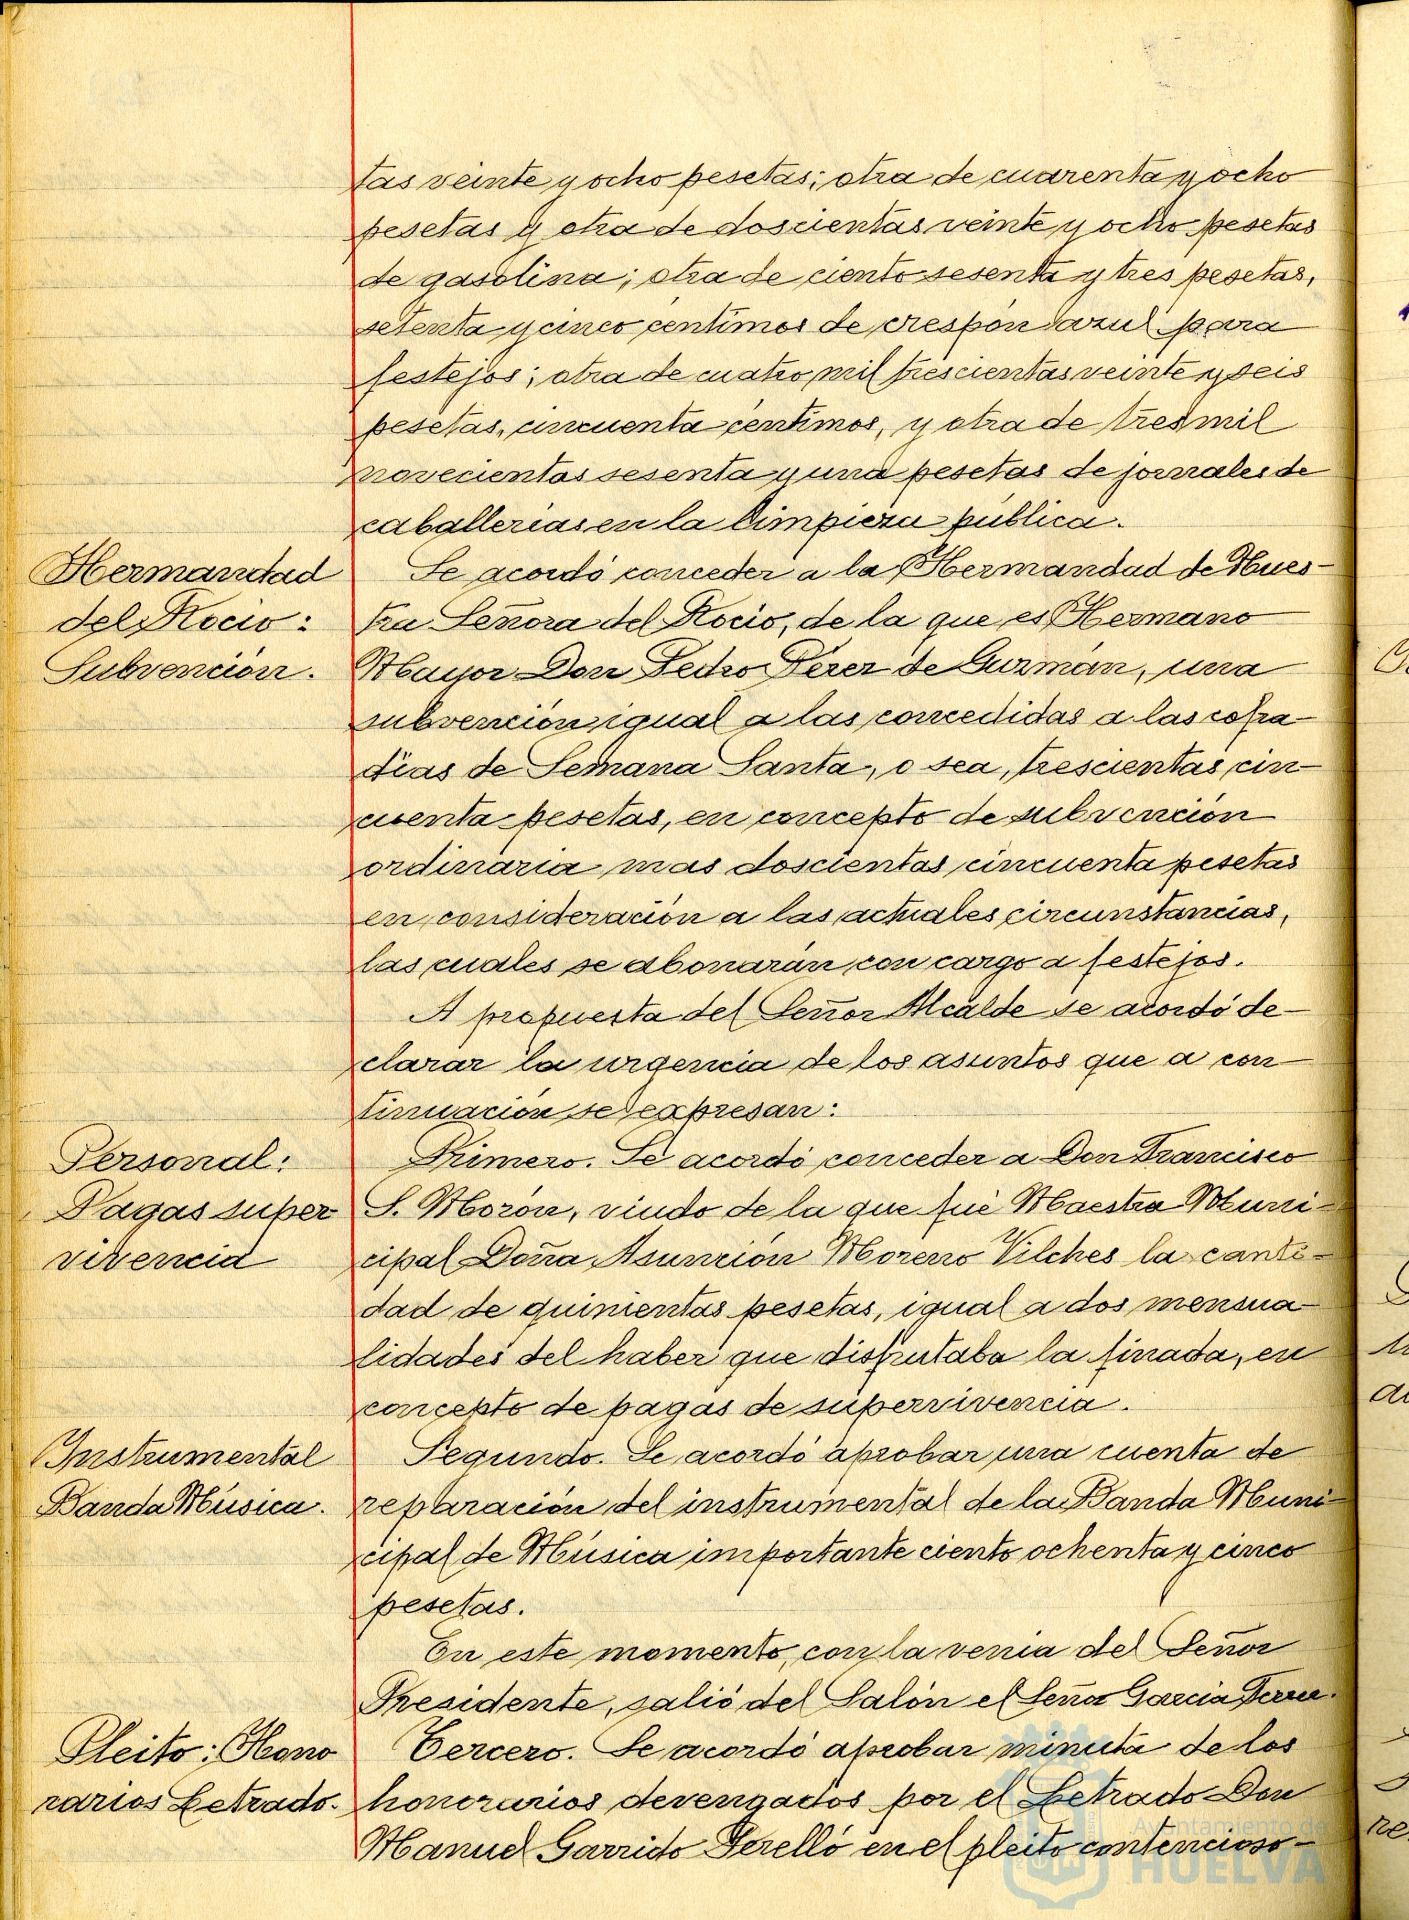 tas veinte y ocho pesetas; otra de cuarenta y ocho
pesetas y otra de doscientas veinte y ocho pesetas
de gasolina; otra de ciento sesenta y tres pesetas,
setenta y cinco céntimos de crespón azul para
festejos; otra de cuatro mil trescientas veinte y seis
pesetas, cincuenta céntimos, y otra de tres mil
novecientas sesenta y una pesetas de jornales de
caballerías en la limpieza pública.
Hermandad
del Rocio:
Subvención.
Se acordó conceder a la Hermandad de Nues-
tra Señora del Rocio, de la que es Hermano
Mayor Don Pedro Pérez de Guzmán, una
subvención igual a las concedidas a las cofra-
días de Semana Santa, o sea, trescientas cin-
cuenta pesetas, en concepto de subvención
ordinaria mas doscientas cincuenta pesetas
en consideración a las actuales circunstancias,
las cuales se abonarán con cargo a festejos.
A propuesta del Señor Alcalde se acordó de-
clarar la urgencia de los asuntos que a con-
tinuación se expresan:
Personal:
Pagas super
vivencia
Primero. Se acordó conceder a Don Francisco
S. Morón, viudo de la que fué Maestra Muni-
cipal Doña Asunción Moreno Vilches la canti-
dad de quinientas pesetas, igual a dos mensua-
lidades del haber que disfrutaba la finada, en
concepto de pagas de supervivencia.
Instrumental
Banda Música.
Segundo. Se acordó aprobar una cuenta de
reparación del instrumental de la Banda Muni-
cipal de Música importante ciento ochenta y cinco
pesetas.
En este momento, con la venia del Señor
Presidente, salió del Salón el Señor García
Pleito: Hono
rarios Letrado.
Tercero. Se acordó aprobar minuta de los
honorarios devengados por el Letrado Don
Manuel Garrido Perelló en el pleito contencioso-
Ayuntamiento de
HUELVA